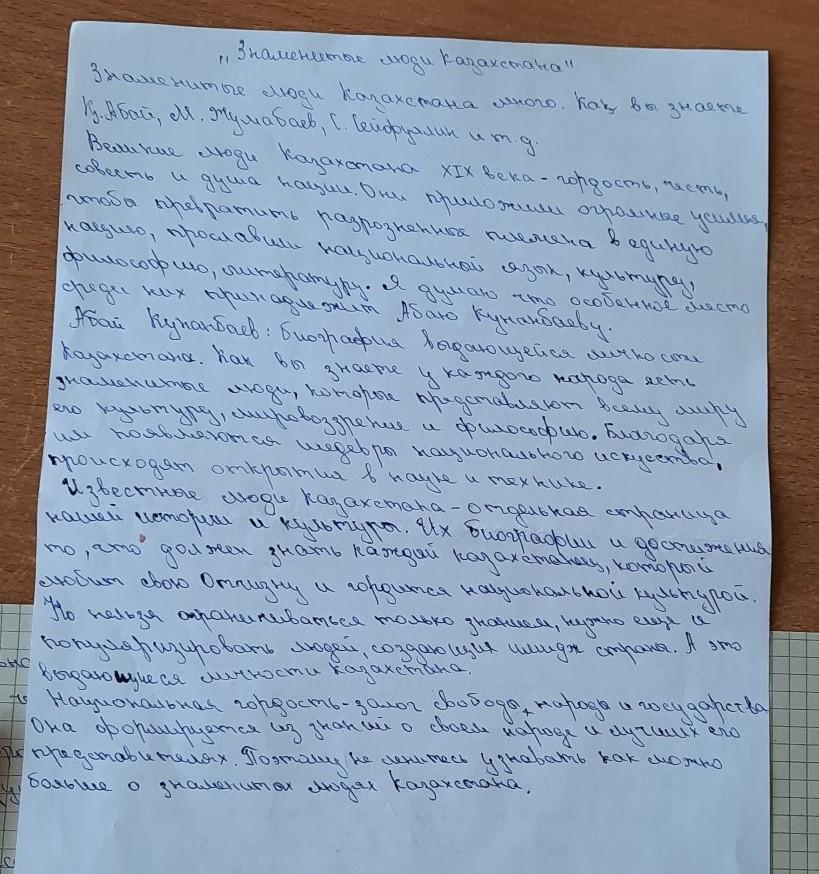 „Знаменитые люди Казахстана"
Знаменитые люди Казахстана много. Как вы знаете
Қ. Абай, М. Жумабаев, С. Сейфуллин и т.д.
Великие люди Казахстана XIX века - гордость, честь,
совесть и душа нации. Они приложили огромные усилия,
чтобы превратить разрозненные племена в единую
нацию, прославили национальной язык, культуру,
философию, литературу. Я думаю что особенное место
среди них принадлежит Абаю Кунанбаеву.
Абай Кунанбаев: биография выдающейся личности
Казахстана. Как вы знаете у каждого народа есть
знаменитые люди, которые представляют всему миру
его культуру, мировоззрение и философию. Благодаря
им появляются шедевры национального искусства,
происходят открытия в науке и технике.
Известные люди Казахстана - отдельная страница
нашей истории и культуры. Их биографии и достижения
то, что должен знать каждой казахстанец, который
любит свою Отчизну и гордится национальной культурой.
Но нельзя ограничиваться только знанием, нужно еще и
популяризировать людей, создающих имидж страны. А это
выдающиеся личности Казахстана.
Национальная гордость - залог свободы, народа и государства
Она формируется из знаний о своем народе и лучших его
представителях. Поэтому не ленитесь узнавать как можно
больше о знаменитых людях Казахстана.